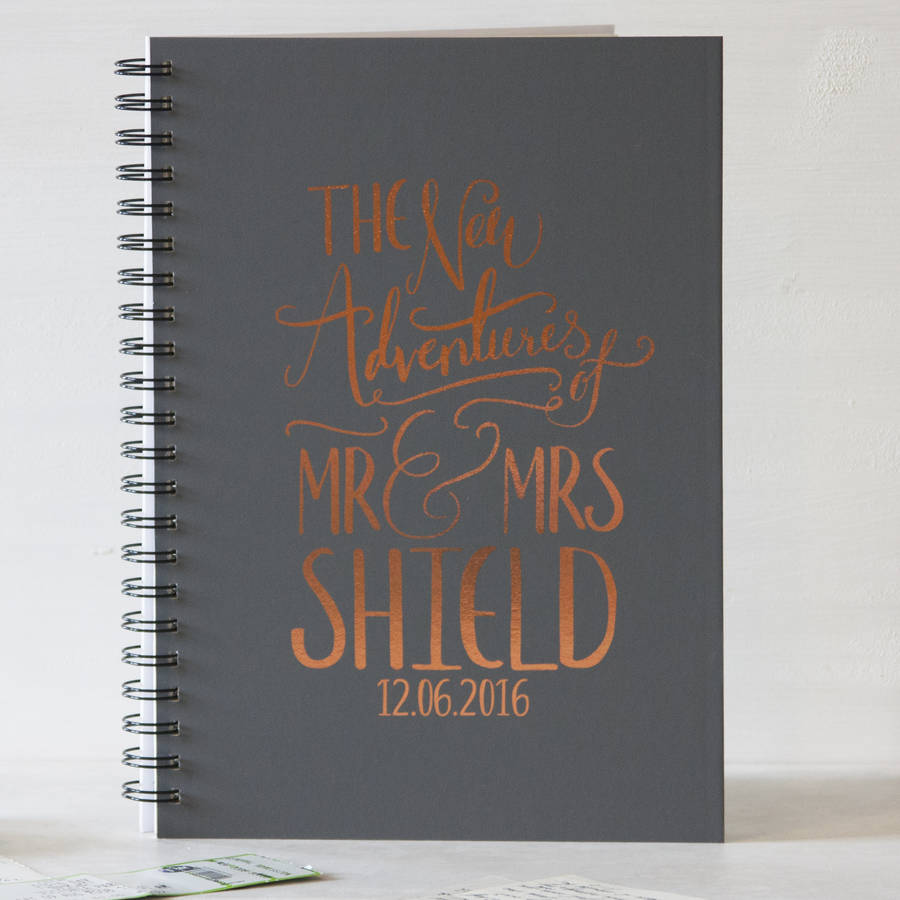 THE New
Adventures of
MR & MRS
SHIELD
12.06.2016